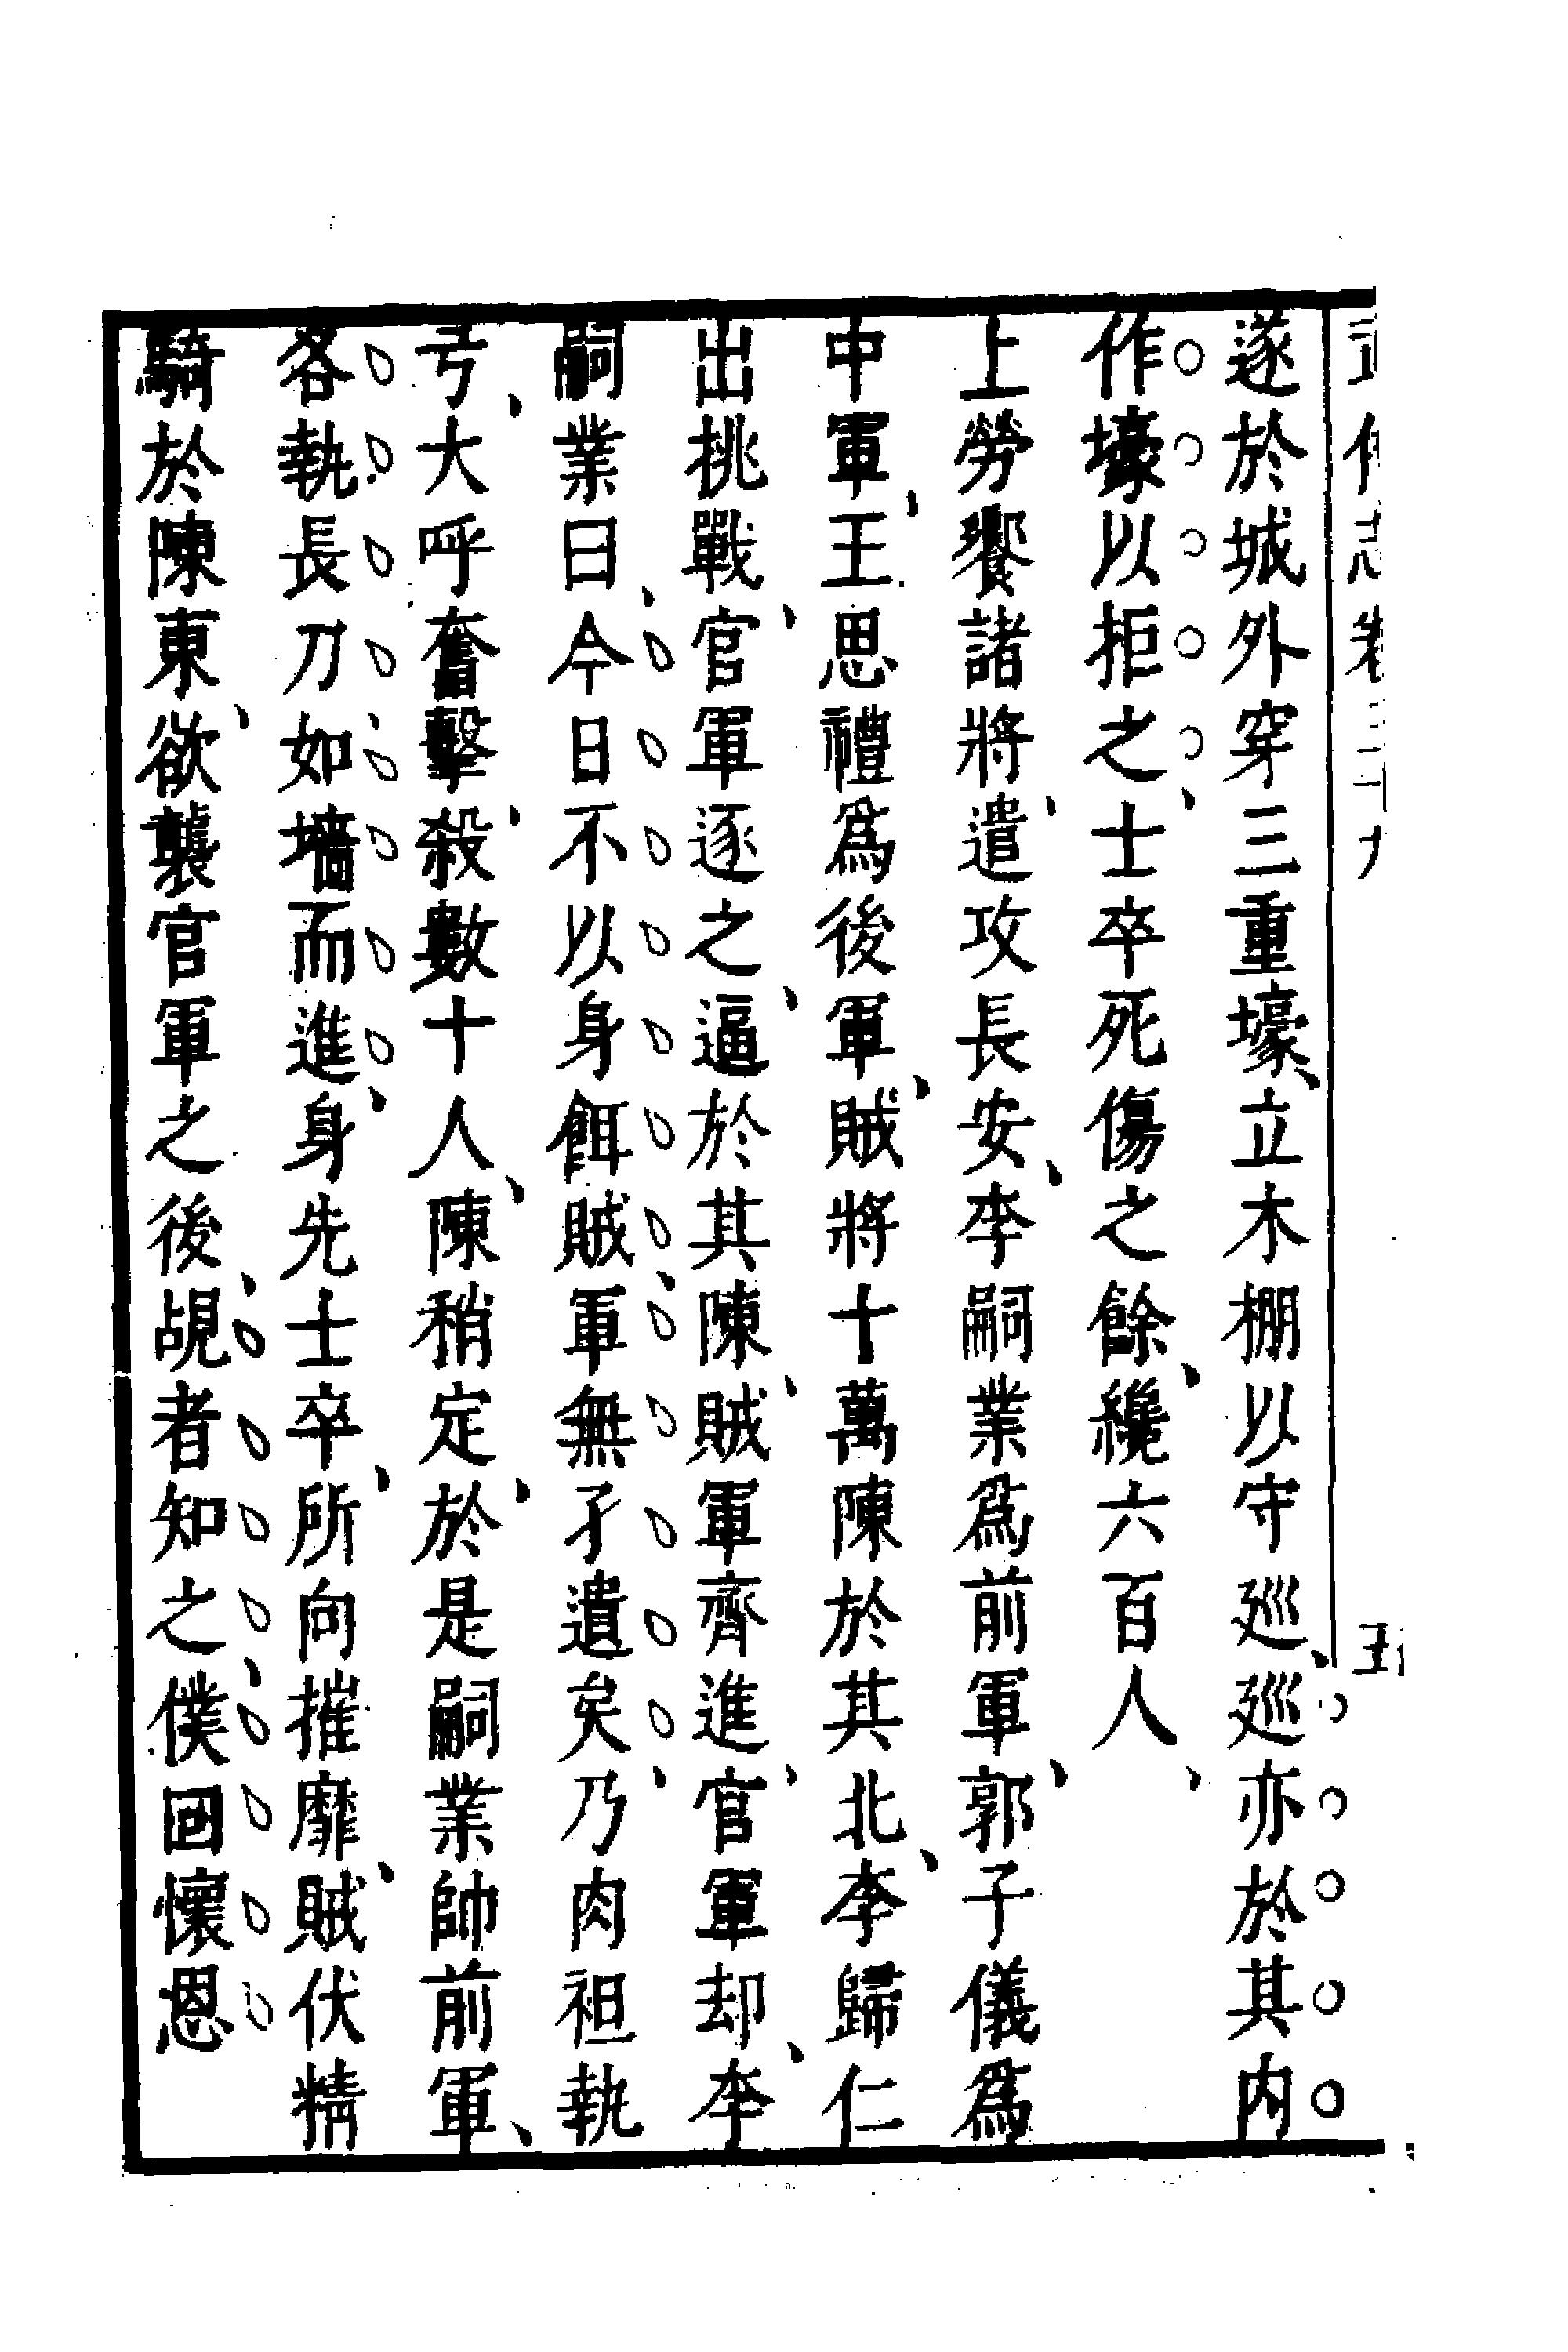 遂於城外穿三重壕立木棚以守廵廵亦於其内
作壕以拒之士卒死傷之餘纔六百人
上勞饗諸將遣攻長安李嗣業爲前軍郭子儀爲
中軍王思禮爲後軍賊將十萬陳於其北李歸仁
出挑戰官軍逐之逼於其陳賊軍齊進官軍却李
嗣業曰今日不以身餌賊軍無孑遺矣乃肉袒執
刀大呼奮擊殺數十人陳稍定於是嗣業帥前軍
各執長刀如墻而進身先士卒所向摧靡賊伏精
騎於陳東欲襲官軍之後覘者知之僕固懷恩